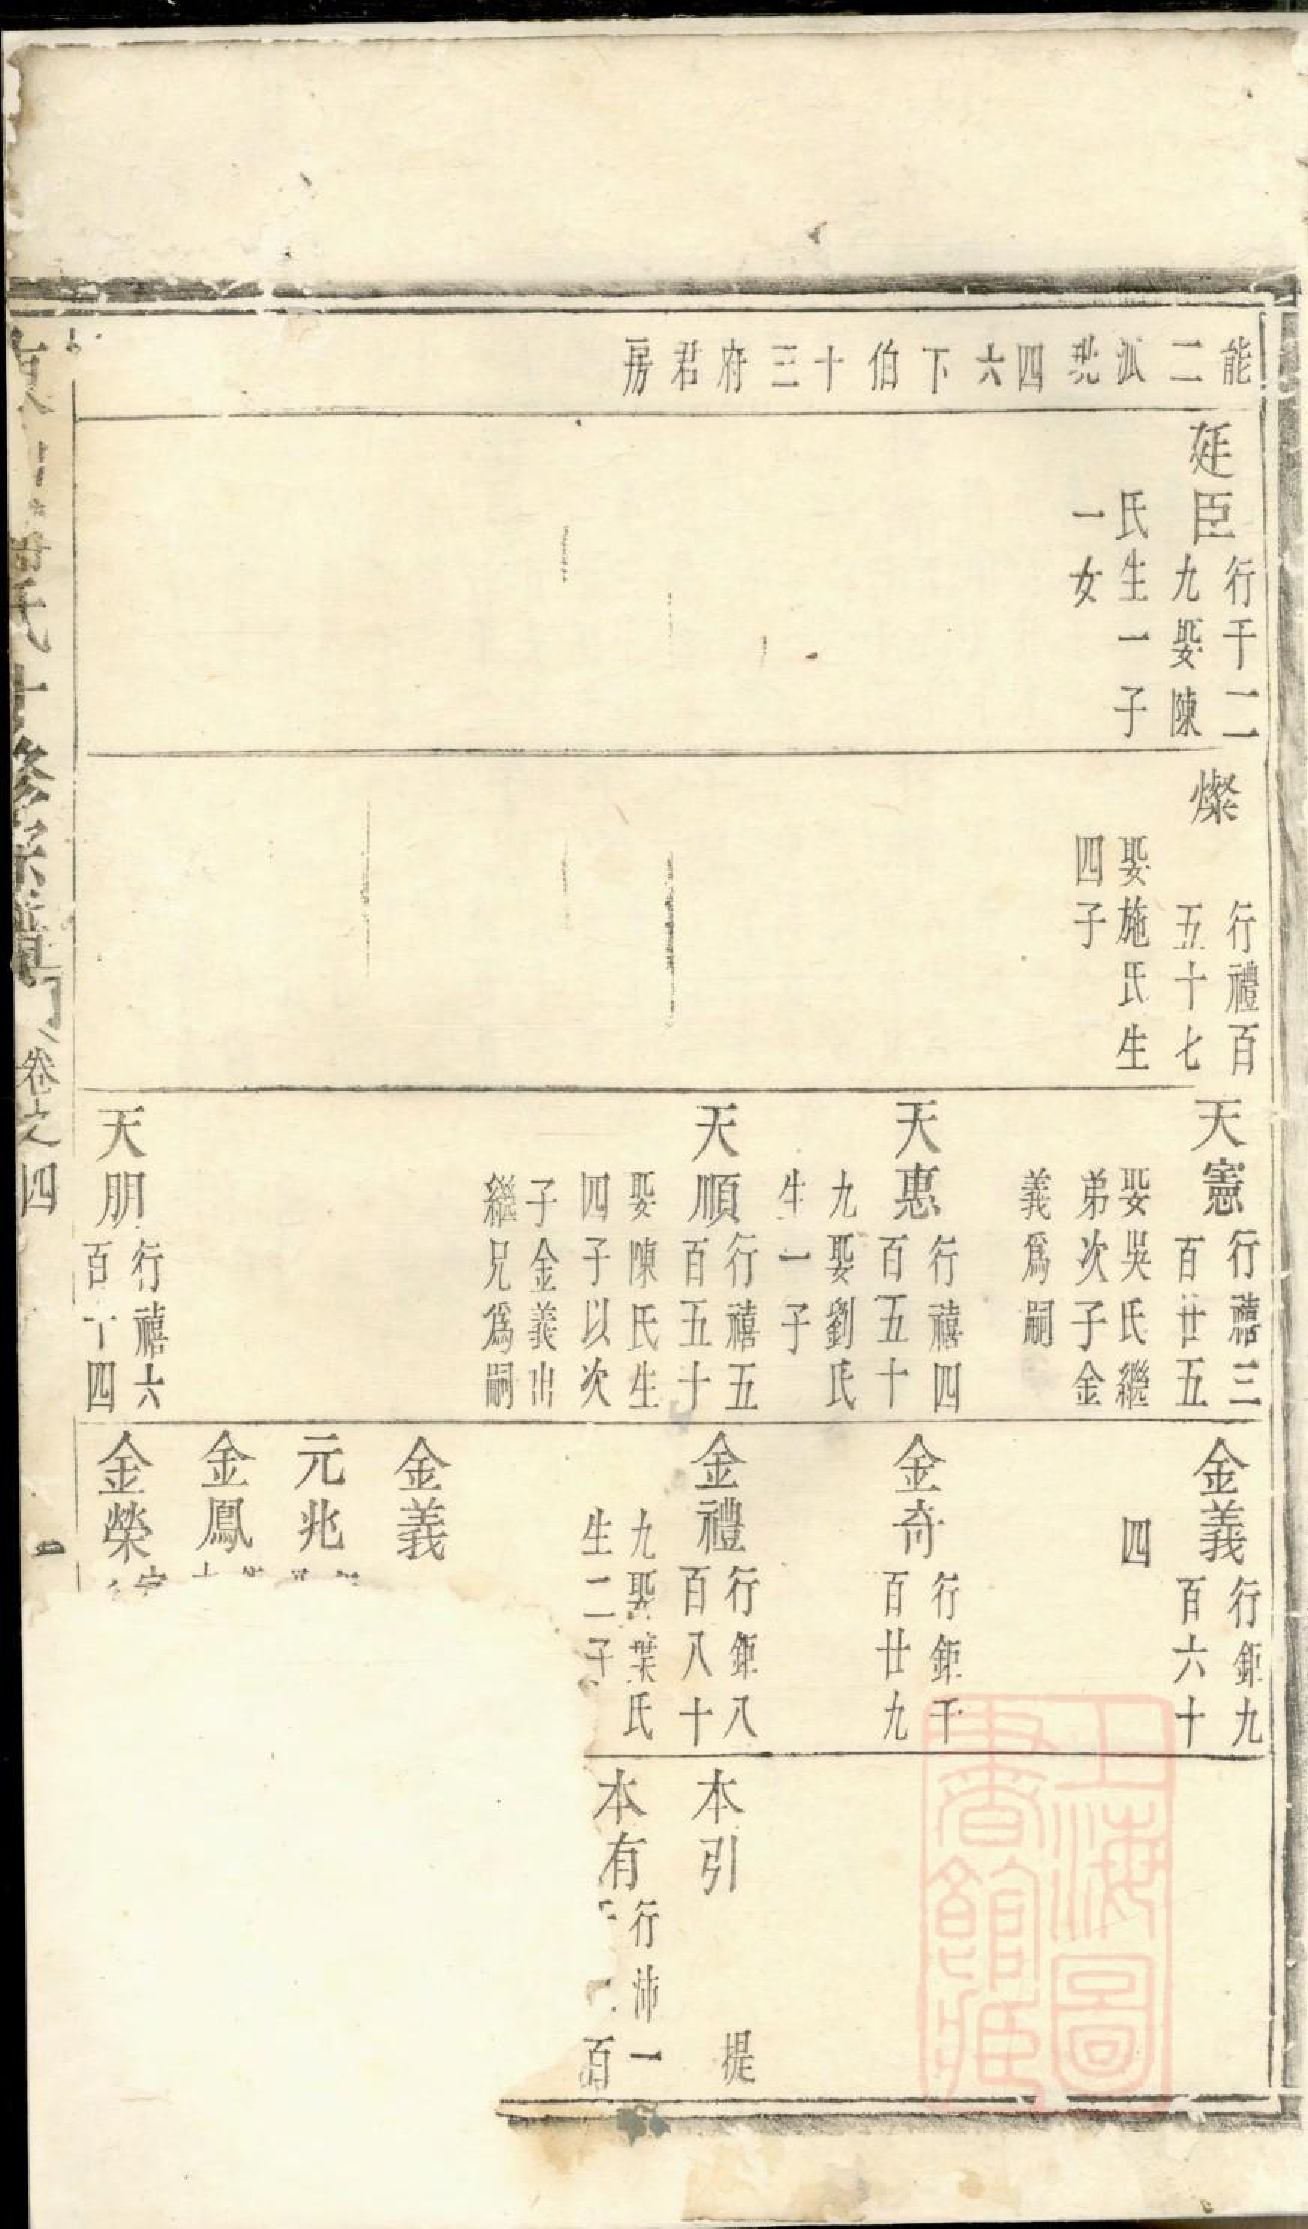 能二派兆四六下伯十三府君房
廷臣
行于二
九娶陳
氏生一子
一女
燦
行禮百
五十七
娶施氏生
四子
天憲
行禧三
百廿五
娶吳氏繼
弟次子金
義爲嗣
天惠
行禧四
百五十
九娶劉氏
生一子
天順
行禧五
百五十
娶陳氏生
四子以次
子金義出
繼兄爲嗣
天朋
行禧六
百十四
金義
行鉅九
百六十
四
金奇
行鉅千
百廿九
金禮
行鉅八
百八十
九娶葉氏
生二子
金義
元兆
金鳳
金榮
本引
提
本有
行沛一
百
氏
修宗譜
卷之四
一
上海圖
書館藏